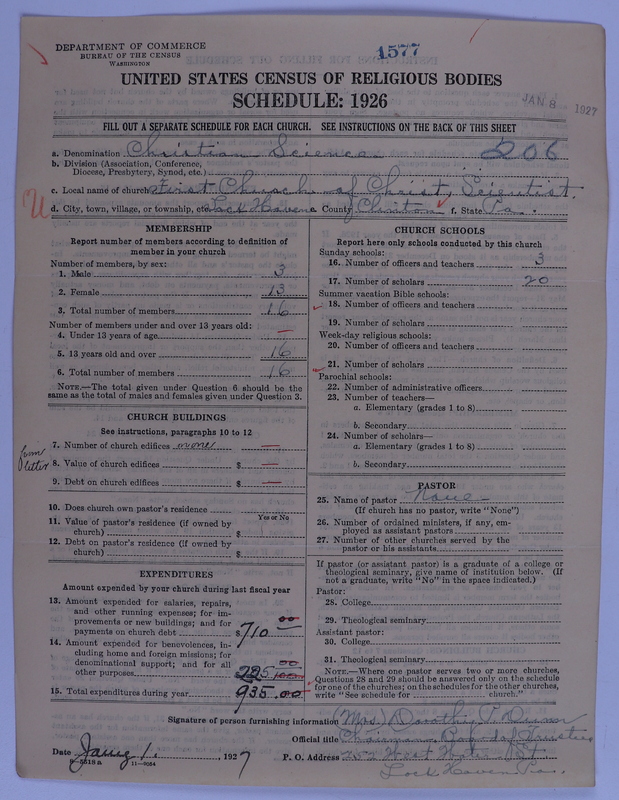 DEPARTMENT OF COMMERCE
BUREAU OF THE CENSUS
WASHINGTON
1577
UNITED STATES CENSUS OF RELIGIOUS BODIES
SCHEDULE: 1926
JAN 8 1927
FILL OUT A SEPARATE SCHEDULE FOR EACH CHURCH. SEE INSTRUCTIONS ON THE BACK OF THIS SHEET
a. Denomination Christian Science 206
b. Division (Association, Conference, Diocese, Presbytery, Synod, etc.)
c. Local name of church First Church of Christ, Scientist.
d. City, town, village, or township, etc. Lock Haven e. County Clinton f. State Pa.
MEMBERSHIP
Report number of members according to definition of member in your church
Number of members, by sex:
1. Male 3
2. Female 13
3. Total number of members 16
Number of members under and over 13 years old:
4. Under 13 years of age —
5. 13 years old and over 16
6. Total number of members 16
NOTE.—The total given under Question 6 should be the same as the total of males and females given under Question 3.
CHURCH BUILDINGS
See instructions, paragraphs 10 to 12
from letter
7. Number of church edifices none —
8. Value of church edifices $ —
9. Debt on church edifices $ —
10. Does church own pastor's residence
Yes or No
11. Value of pastor's residence (if owned by church) $
12. Debt on pastor's residence (if owned by church) $
EXPENDITURES
Amount expended by your church during last fiscal year
13. Amount expended for salaries, repairs, and other running expenses; for improvements or new buildings; and for payments on church debt $ 710.00
14. Amount expended for benevolences, including home and foreign missions; for denominational support; and for all other purposes 225 00
15. Total expenditures during year 935.00
CHURCH SCHOOLS
Report here only schools conducted by this church
Sunday schools:
16. Number of officers and teachers 3
17. Number of scholars 20
Summer vacation Bible schools:
18. Number of officers and teachers
19. Number of scholars
Week-day religious schools:
20. Number of officers and teachers
21. Number of scholars
Parochial schools:
22. Number of administrative officers
23. Number of teachers—
a. Elementary (grades 1 to 8)
b. Secondary
24. Number of scholars—
a. Elementary (grades 1 to 8)
b. Secondary
PASTOR
25. Name of pastor None
(If church has no pastor, write "None")
26. Number of ordained ministers, if any, employed as assistant pastors
27. Number of other churches served by the pastor or his assistants
If pastor (or assistant pastor) is a graduate of a college or theological seminary, give name of institution below. (If not a graduate, write "No" in the space indicated.)
Pastor:
28. College
29. Theological seminary
Assistant pastor:
30. College
31. Theological seminary
NOTE.—Where one pastor serves two or more churches, Questions 28 and 29 should be answered only on the schedule for one of the churches; on the schedules for the other churches, write "See schedule for church."
Signature of person furnishing information (Mrs) Dorothy T.
Official title Chairman Board of Trustees
Date 1. 1927 P. O. Address West Water St.
Lock Haven Pa.
8-5318 a 11-9084